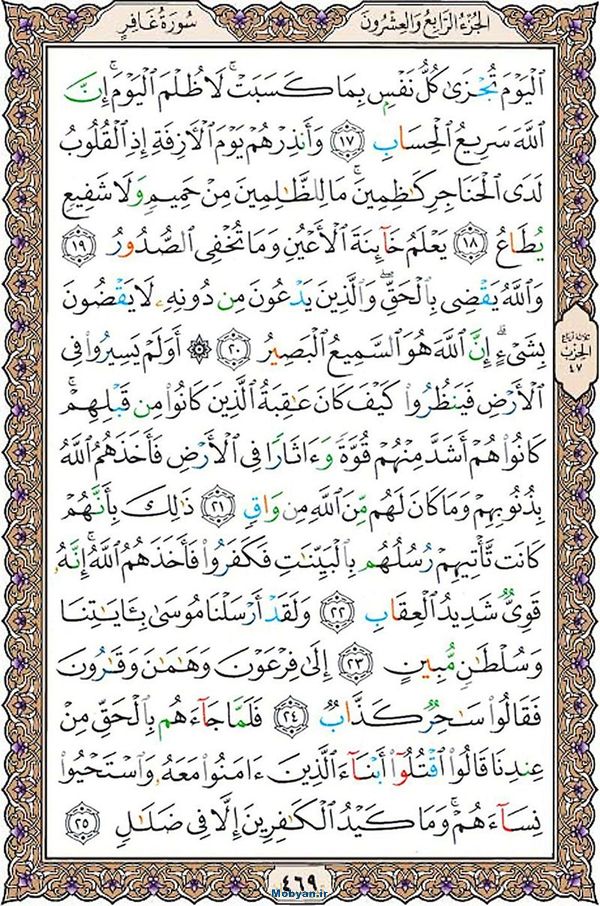 الجُزْءُ الرَّابِعُ وَالعِشْرُونَ
سُورَةُ غَافِرٍ
ٱلْيَوْمَ تُجْزَىٰ كُلُّ نَفْسٍۭ بِمَا كَسَبَتْ ۚ لَا ظُلْمَ ٱلْيَوْمَ ۚ إِنَّ
ٱللَّهَ سَرِيعُ ٱلْحِسَابِ ١٧ وَأَنذِرْهُمْ يَوْمَ ٱلْـَٔازِفَةِ إِذِ ٱلْقُلُوبُ
لَدَى ٱلْحَنَاجِرِ كَـٰظِمِينَ ۚ مَا لِلظَّـٰلِمِينَ مِنْ حَمِيمٍ وَلَا شَفِيعٍ
يُطَاعُ ١٨ يَعْلَمُ خَآئِنَةَ ٱلْأَعْيُنِ وَمَا تُخْفِى ٱلصُّدُورُ ١٩
وَٱللَّهُ يَقْضِى بِٱلْحَقِّ ۖ وَٱلَّذِينَ يَدْعُونَ مِن دُونِهِۦ لَا يَقْضُونَ
بِشَىْءٍ ۗ إِنَّ ٱللَّهَ هُوَ ٱلسَّمِيعُ ٱلْبَصِيرُ ٢٠ ۞ أَوَلَمْ يَسِيرُوا۟ فِى
ٱلْأَرْضِ فَيَنظُرُوا۟ كَيْفَ كَانَ عَـٰقِبَةُ ٱلَّذِينَ كَانُوا۟ مِن قَبْلِهِمْ ۚ
كَانُوا۟ هُمْ أَشَدَّ مِنْهُمْ قُوَّةً وَءَاثَارًا فِى ٱلْأَرْضِ فَأَخَذَهُمُ ٱللَّهُ
بِذُنُوبِهِمْ وَمَا كَانَ لَهُم مِّنَ ٱللَّهِ مِن وَاقٍ ٢١ ذَٰلِكَ بِأَنَّهُمْ
كَانَت تَّأْتِيهِمْ رُسُلُهُم بِٱلْبَيِّنَـٰتِ فَكَفَرُوا۟ فَأَخَذَهُمُ ٱللَّهُ ۚ إِنَّهُۥ
قَوِىٌّ شَدِيدُ ٱلْعِقَابِ ٢٢ وَلَقَدْ أَرْسَلْنَا مُوسَىٰ بِـَٔايَـٰتِنَا
وَسُلْطَـٰنٍ مُّبِينٍ ٢٣ إِلَىٰ فِرْعَوْنَ وَهَـٰمَـٰنَ وَقَـٰرُونَ
فَقَالُوا۟ سَـٰحِرٌ كَذَّابٌ ٢٤ فَلَمَّا جَآءَهُم بِٱلْحَقِّ مِنْ
عِندِنَا قَالُوا۟ ٱقْتُلُوٓا۟ أَبْنَآءَ ٱلَّذِينَ ءَامَنُوا۟ مَعَهُۥ وَٱسْتَحْيُوا۟
نِسَآءَهُمْ ۚ وَمَا كَيْدُ ٱلْكَـٰفِرِينَ إِلَّا فِى ضَلَـٰلٍ ٢٥
ثلاثة أرباع
الحزب
٤٧
٤٦٩
Mobyan.ir